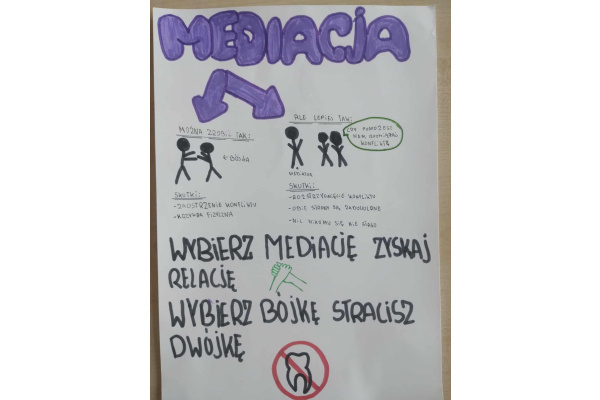 MEDIACJA
MOŻNA ZROBIĆ TAK:
ALE LEPIEJ TAK:
CZY POMOŻESZ
NAM
KONFLIKT?
← BÓJKA
MEDIATOR
SKUTKI:
- ZAOSTRZENIE KONFLIKTU
- KRZYWDA FIZYCZNA
SKUTKI:
- ROZSTRZYGNIĘCIE KONFLIKTU
- OBIE STRONY SĄ ZADOWOLONE
- NIC NIKOMU SIĘ NIE STAŁO
WYBIERZ MEDIACJĘ ZYSKAJ
RELACJĘ
WYBIERZ BÓJKĘ STRACISZ
DWÓJKĘ